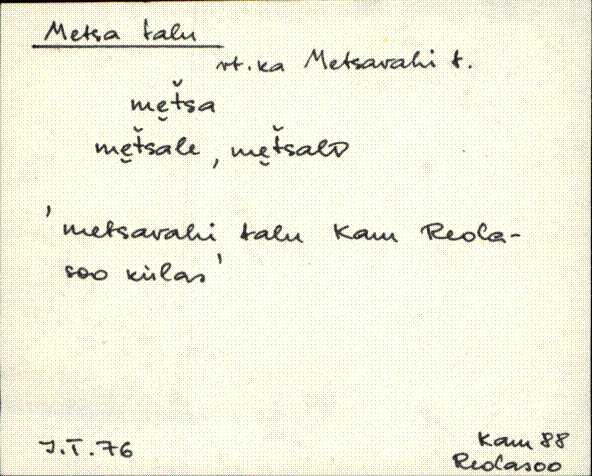 Metsa talu
vt. ka Metsavahi t.
me̮t̆sa
me̮t̆sale, me̮t̆salᴅ
'metsavahi talu Kam Reola-
soo külas'
J.T. 76
Kam 88
Reolasoo